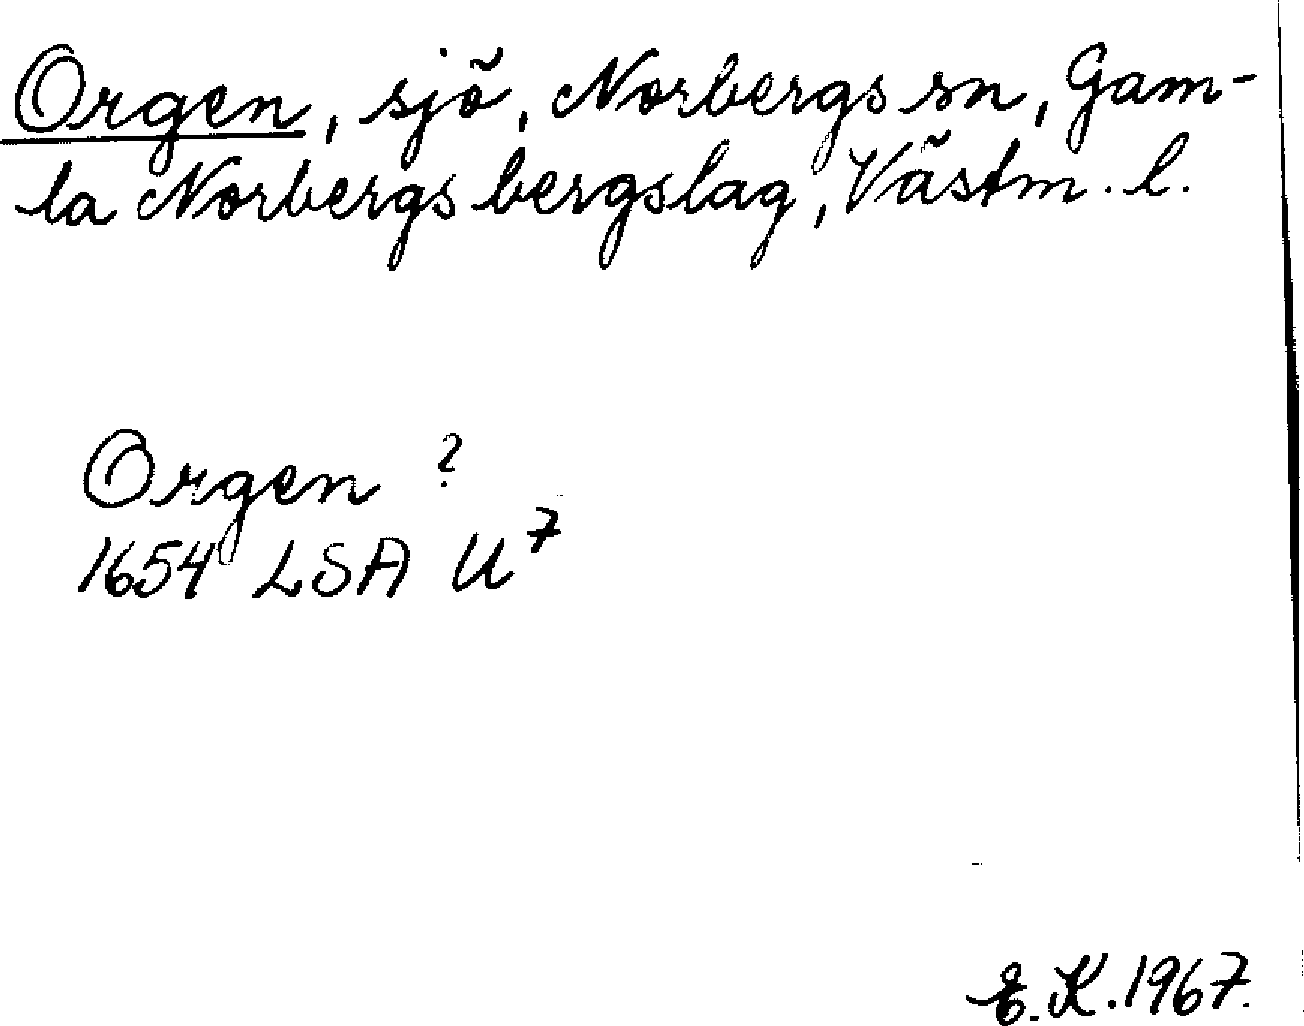 Orgen, sjö, Norbergs sn, Gam-
la Norbergs bergslag, Västm. l.
Orgen ?
1654 LSA U⁷
E. K. 1967.